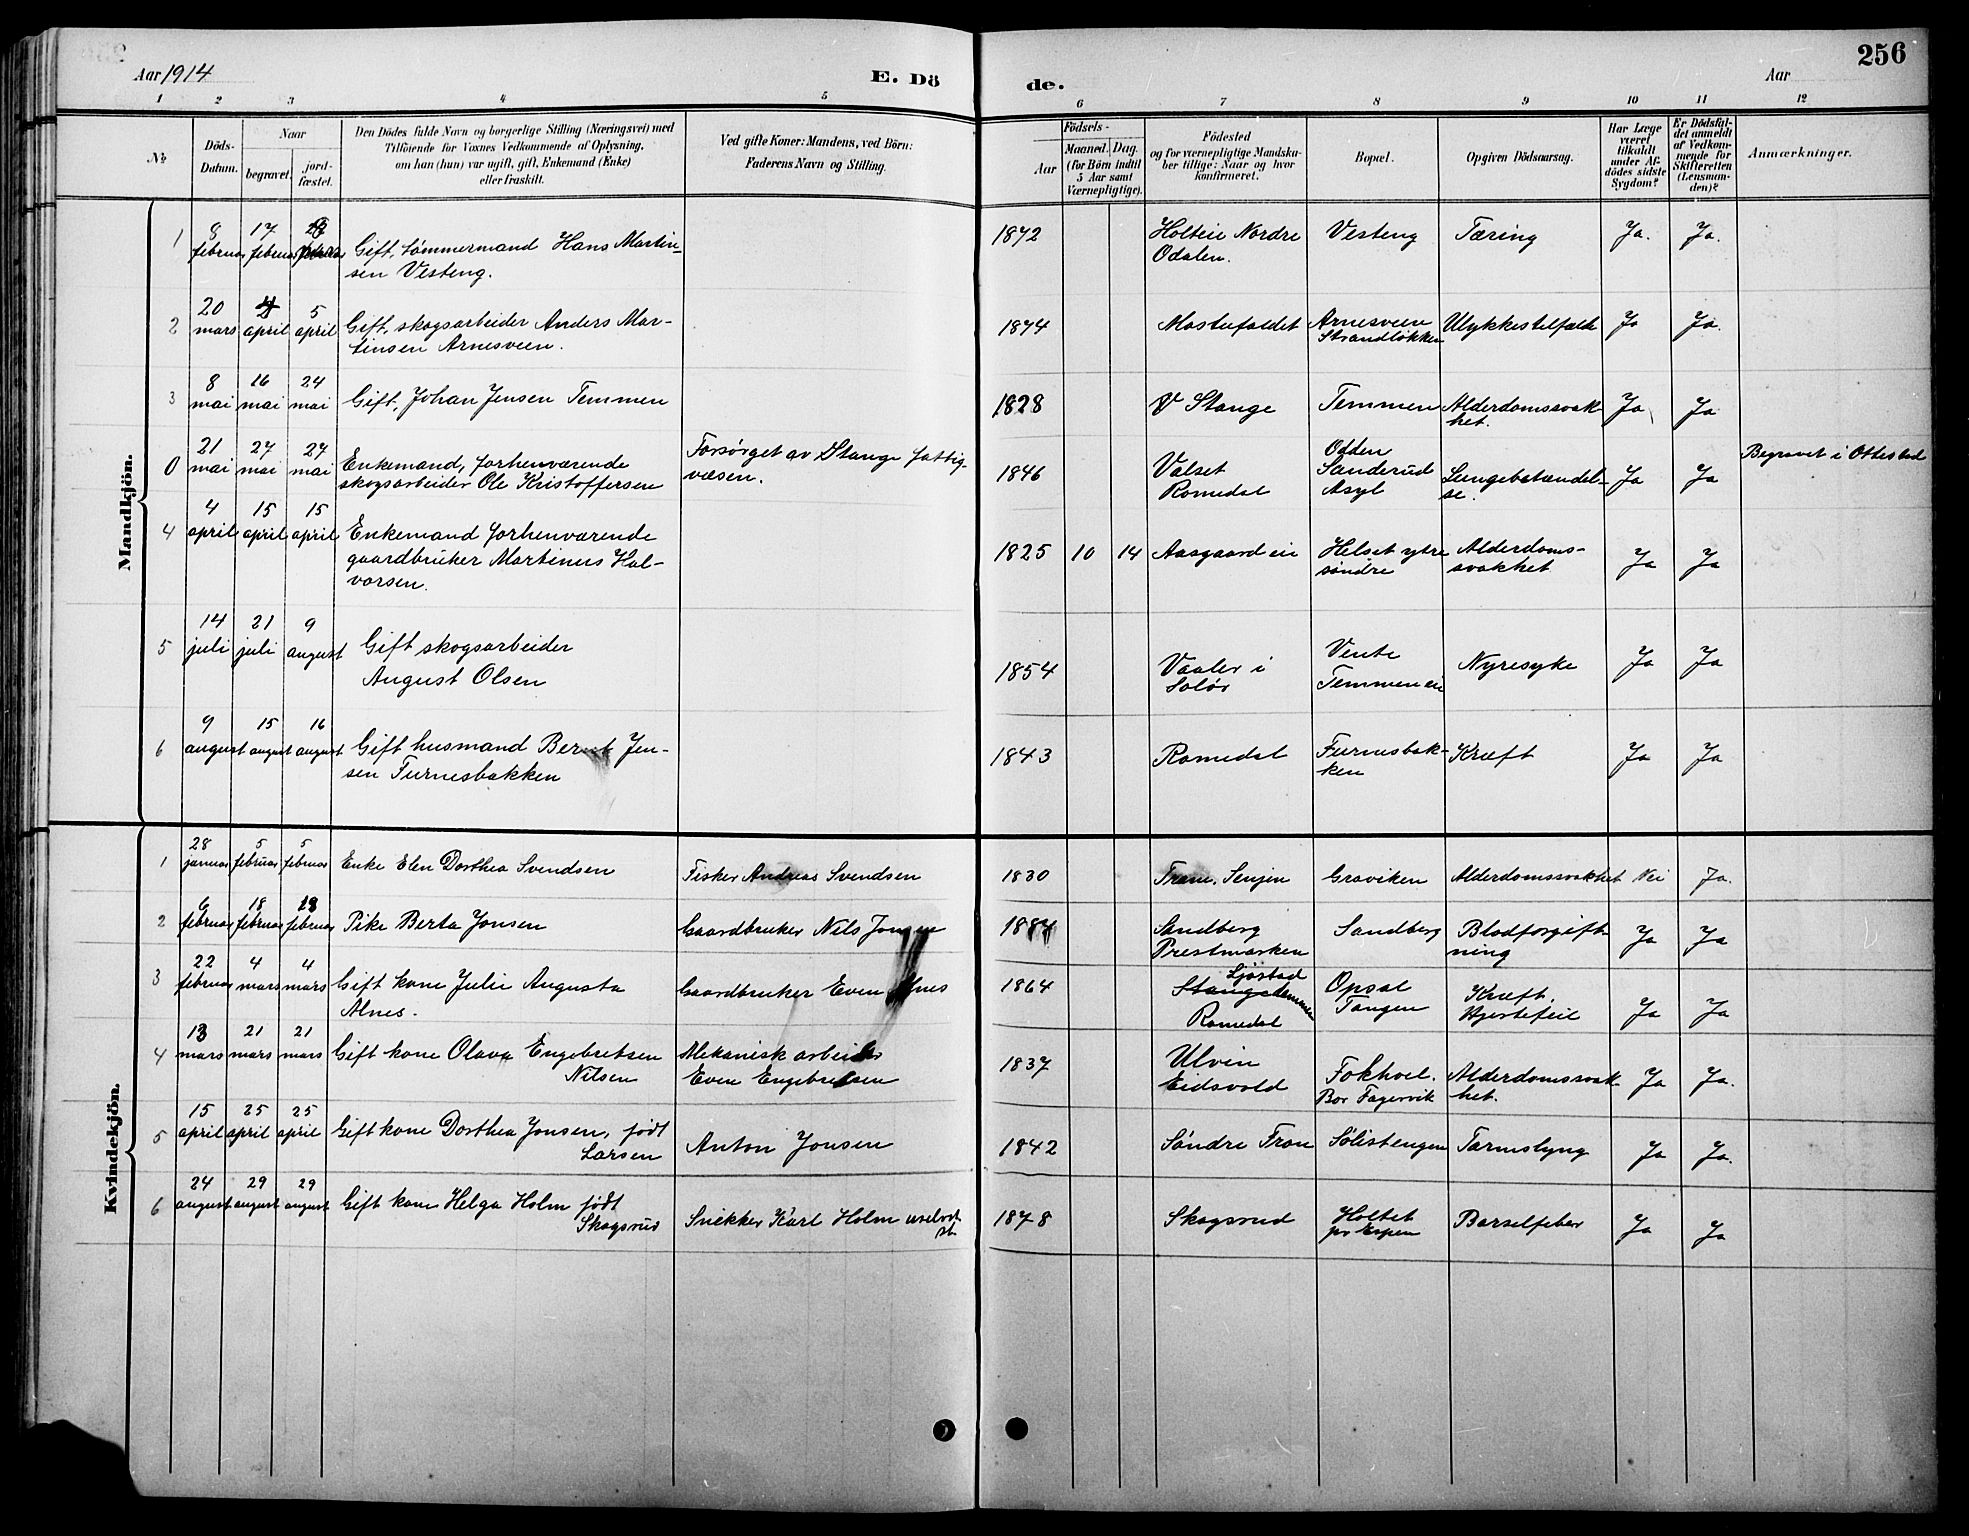 256
Aar 1914
E. Dö
de.
Aar
1 2 3 4 5 6 7 8 9 10 11 12
No
Döds-Datum.
Naar
begravet.
jord-fæstet.
Den Dödes fulde Navn og borgerlige Stilling (Næringsvei) med
Tilföiende for Voxnes Vedkommende af Oplysning,
om han (hun) var ugift, gift, Enkemand (Enke)
eller fraskilt.
Ved gifte Koner: Mandens, ved Börn:
Faderens Navn og Stilling.
Födsels-
Aar
Maaned. Dag.
(for Börn indtil
5 Aar samt
Værnepligtige).
Födested
og for værnepligtige Mandska-
ber tillige: Naar og hvor
konfirmeret.
Bopæl.
Opgiven Dödsaarsag.
Har Læge
været
tilkaldt
under Af-
dödes sidste
Sygdom?
Er Dödsfal-
det anmeldt
af Vedkom-
mende for
Skifteretten
(Lensman-
den)?
Anmærkninger.
Mandkjön.
1 8 februar 17 februar Gift, tømmermand Hans Martin-
sen Vesteng.
1872 Holteie Nordre
Odalen.
Vesteng Tæring Ja. Ja.
2 20 mars april 5 april Gift, skogsarbeider Anders Mar-
tinsen Arnesveen.
1874 Mostufaldet Arnesveen
Strandløkken
Ulykkestilfælde Ja Ja.
3 8 mai 16 mai 24 mai Gift, Johan Jensen Temmen
1828 V Stange Temmen Alderdomssvak
het.
Ja Ja
0 21 mai 27 mai 27 mai Enkemand, forhenværende
skogsarbeider Ole Kristoffersen
Forsørget av Stange fattig-
væsen.
1846 Valset
Romedal
Odden
Sanderud
Asyl
Lungebetændel-
se.
Ja Ja Begravet i Ottestad
4 4 april 15 april 15 april Enkemand forhenværende
gaardbruker Martinus Hal-
vorsen.
1825 10 14 Aasgaard eie Helset ytre
søndre
Alderdoms-
svakhet
Ja Ja
5 14 juli 21 juli 9 august Gift skogsarbeider
August Olsen
1854 Vaaler i
Solør
Vente
Temmen eie
Nyresyke Ja Ja
6 9 august 15 august 16 august Gift husmand Bernt Jen-
sen Furnesbakken
1843 Romedal Furnesbak-
ken
Kræft Ja Ja
Kvindekjön.
1 28 januar 5 februar 5 februar Enke Elen Dorthea Svendsen Fisker Andreas Svendsen
1830 Senjen Graviken Alderdomssvakhet Nei Ja.
2 6 februar 18 februar februar Pike Berta Jonsen Gaardbruker Nils Jonsen
1884 Sandberg
Prestmarken
Sandberg Blodforgift-
ning
Ja Ja
3 22 februar 4 mars 4 mars Gift kone Julie Augusta
Alnes.
Gaardbruker Even Alnes
1864 Ljøstad
Romedal
Opsal
Tangen
Kræft.
Hjertefeil
Ja Ja
4 13 mars 21 mars 21 mars Gift kone Olava Engebretsen
Nilsen
Mekanisk arbeider
Even Engebretsen
1837 Ulvin
Eidsvold
Fokhoel.
Bor Fagervik
Alderdomssvak
het.
Ja Ja.
5 15 april 25 april 25 april Gift kone Dorthea Jonsen, født
Larsen
Anton Jonsen
1842 Søndre Fron Sølistengen Tarmslyng Ja Ja.
6 24 august 29 august 29 august Gift kone Helga Holm født
Skogsrud
Snekker Karl Holm
1878 Skogsrud Holtet
pr Espen
Barselfeber Ja Ja